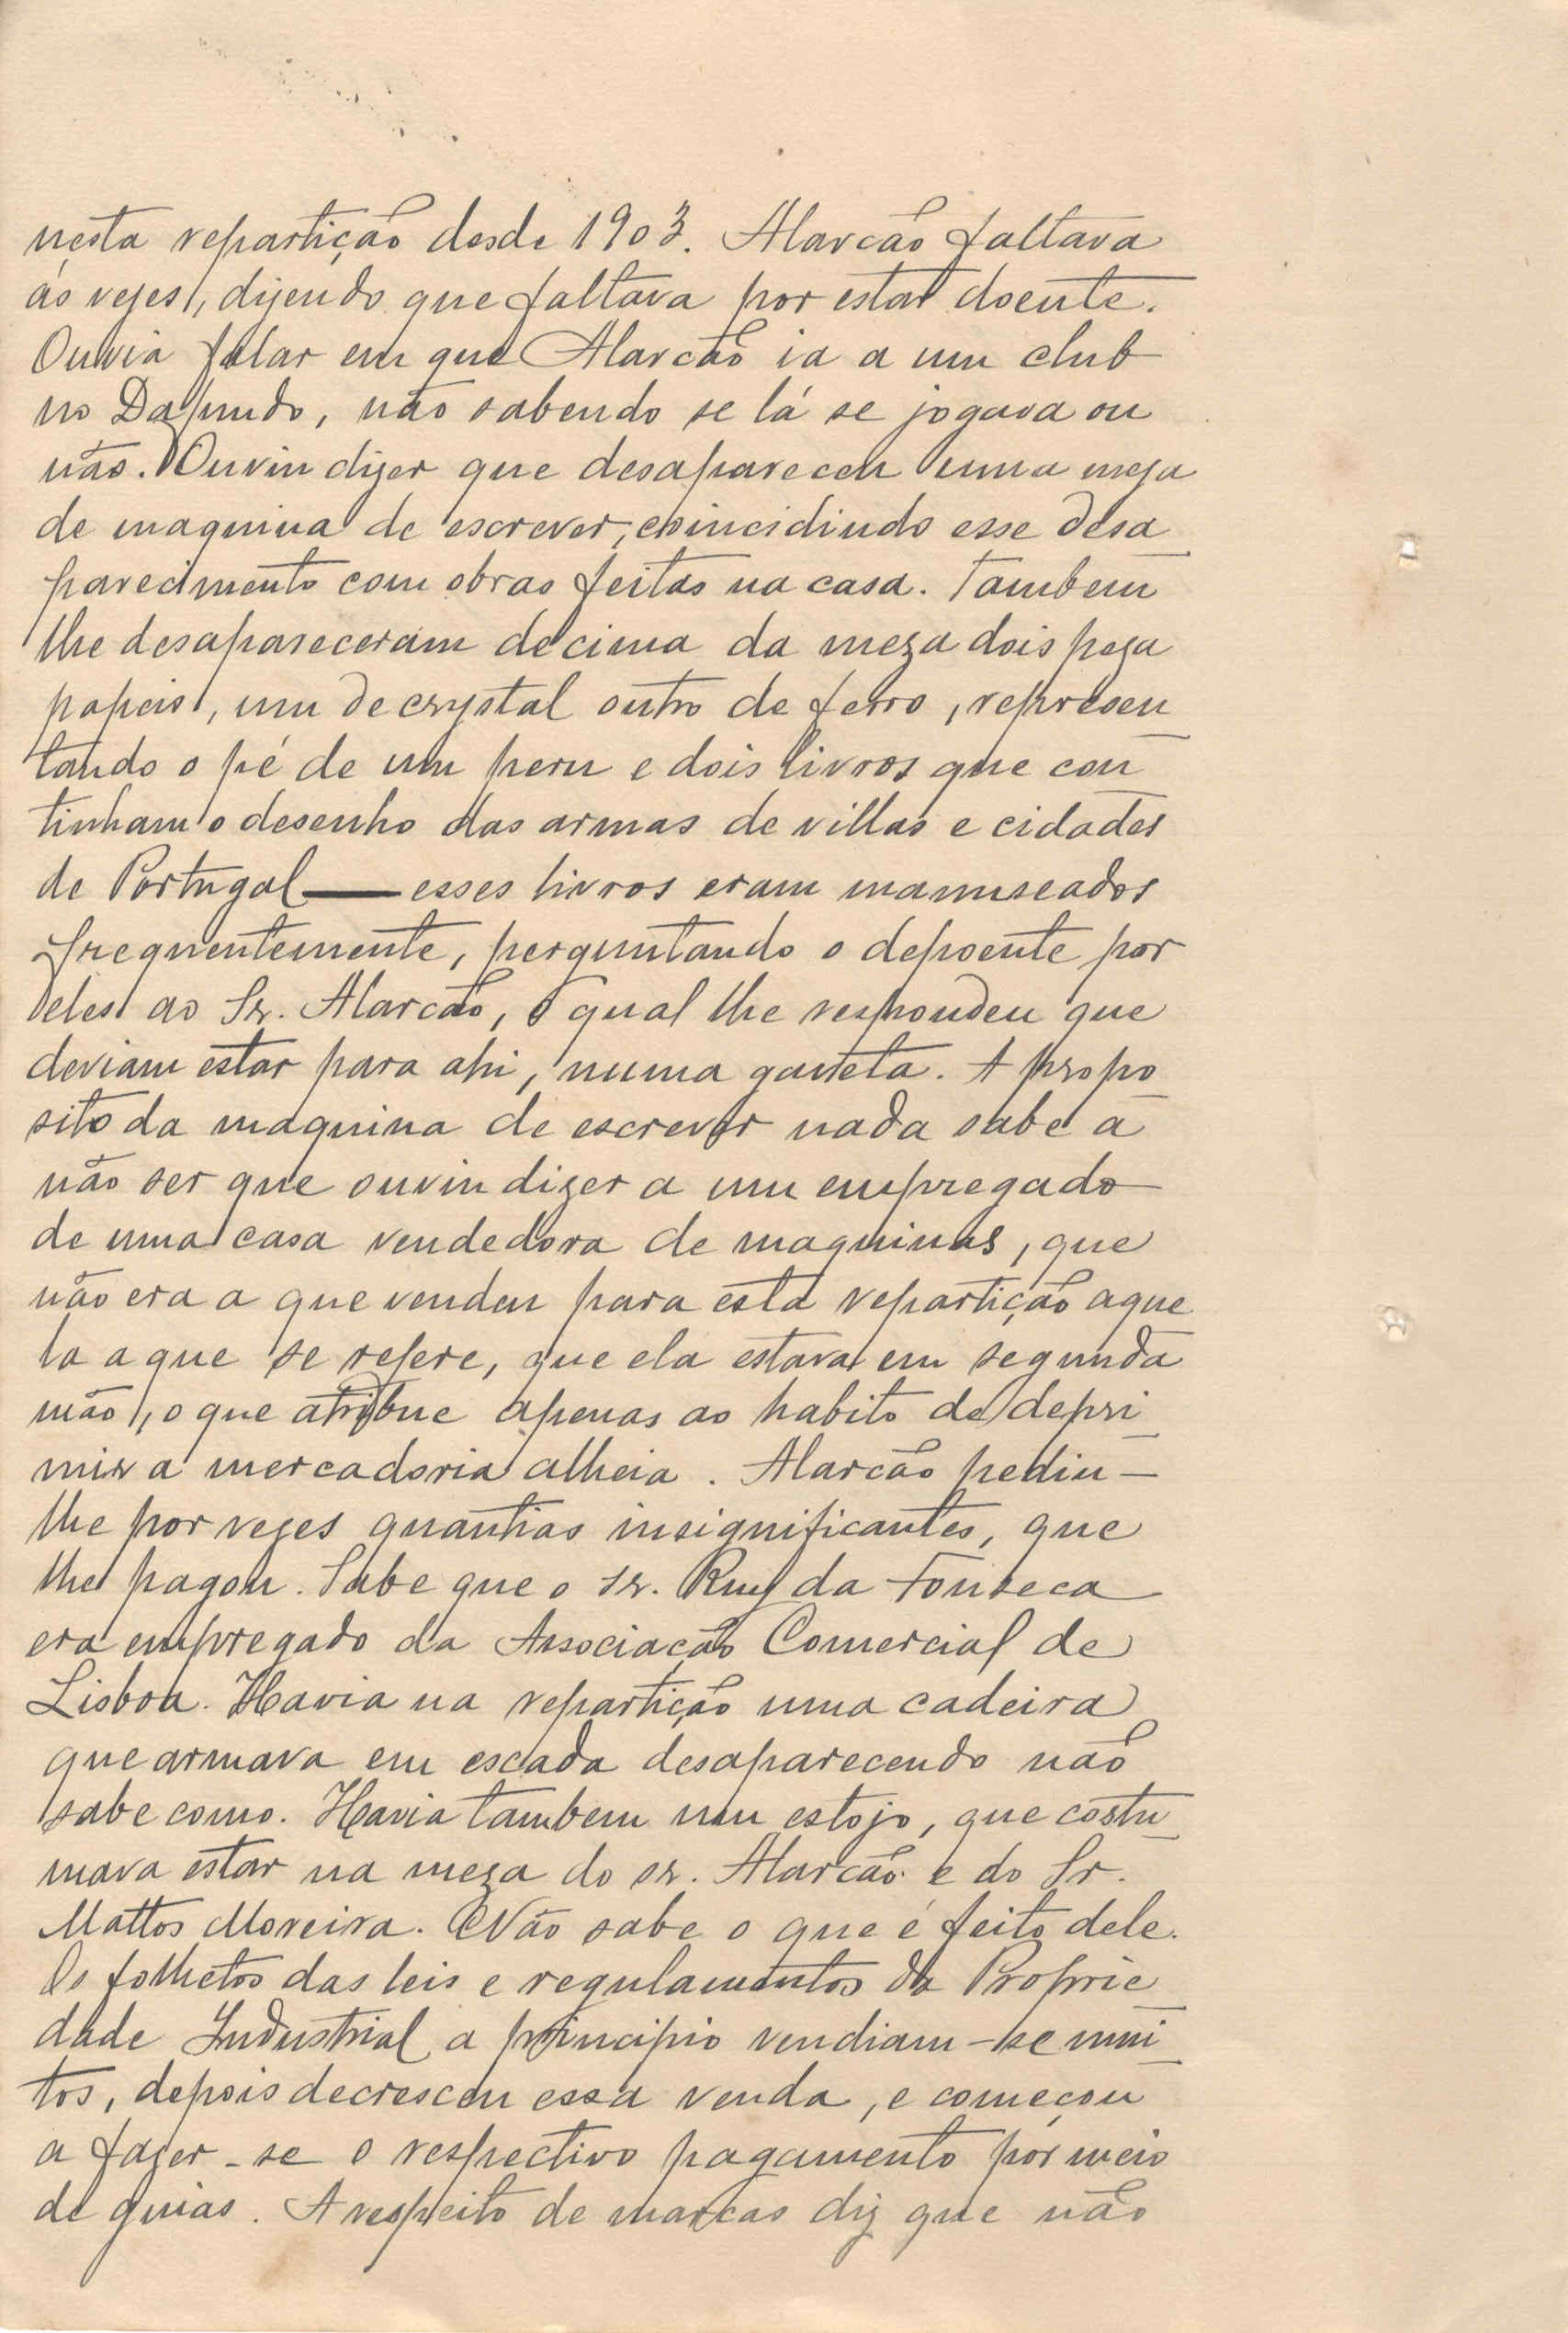 nesta repartição desde 1903. Alarcão faltava
ás vezes, dizendo que faltava por estar doente.
Ouvia falar em que Alarcão ia a um club
no Dafundo, não sabendo se lá se jogava ou
não. Ouviu dizer que desapareceu uma meza
de maquina de escrever, coincidindo esse desa
parecimento com obras feitas na casa. Tambem
lhe desapareceram de cima da meza dois peza
papeis, um de crystal outro de ferro, represen
tando o pé de um peru e dois livros que con
tinham o desenho das armas de villas e cidades
de Portugal — esses livros eram manuseados
frequentemente, perguntando o depoente por
eles ao Sr. Alarcão, o qual lhe respondeu que
deviam estar para ahi, numa gaveta. A propo
sito da maquina de escrever nada sabe a
não ser que ouviu dizer a um empregado
de uma casa vendedora de maquinas, que
não era a que vendeu para esta repartição aque
la a que se refere, que ela estava em segunda
mão, o que atribue apenas ao habito de depri
mir a mercadoria alheia. Alarcão pediu-
lhe por vezes quantias insignificantes, que
lhe pagou. Sabe que o sr. Ruy da Fonseca
era empregado da Associação Comercial de
Lisboa. Havia na repartição uma cadeira
que armava em escada desaparecendo não
sabe como. Havia tambem um estojo, que costu
mava estar na meza do sr. Alarcão e do Sr.
Mattos Moreira. Não sabe o que é feito dele.
Os folhetos das leis e regulamentos da Proprie
dade Industrial a principio vendiam-se mui
tos, depois decresceu essa venda, e começou
a fazer-se o respectivo pagamento por meio
de guias. A respeito de marcas diz que não